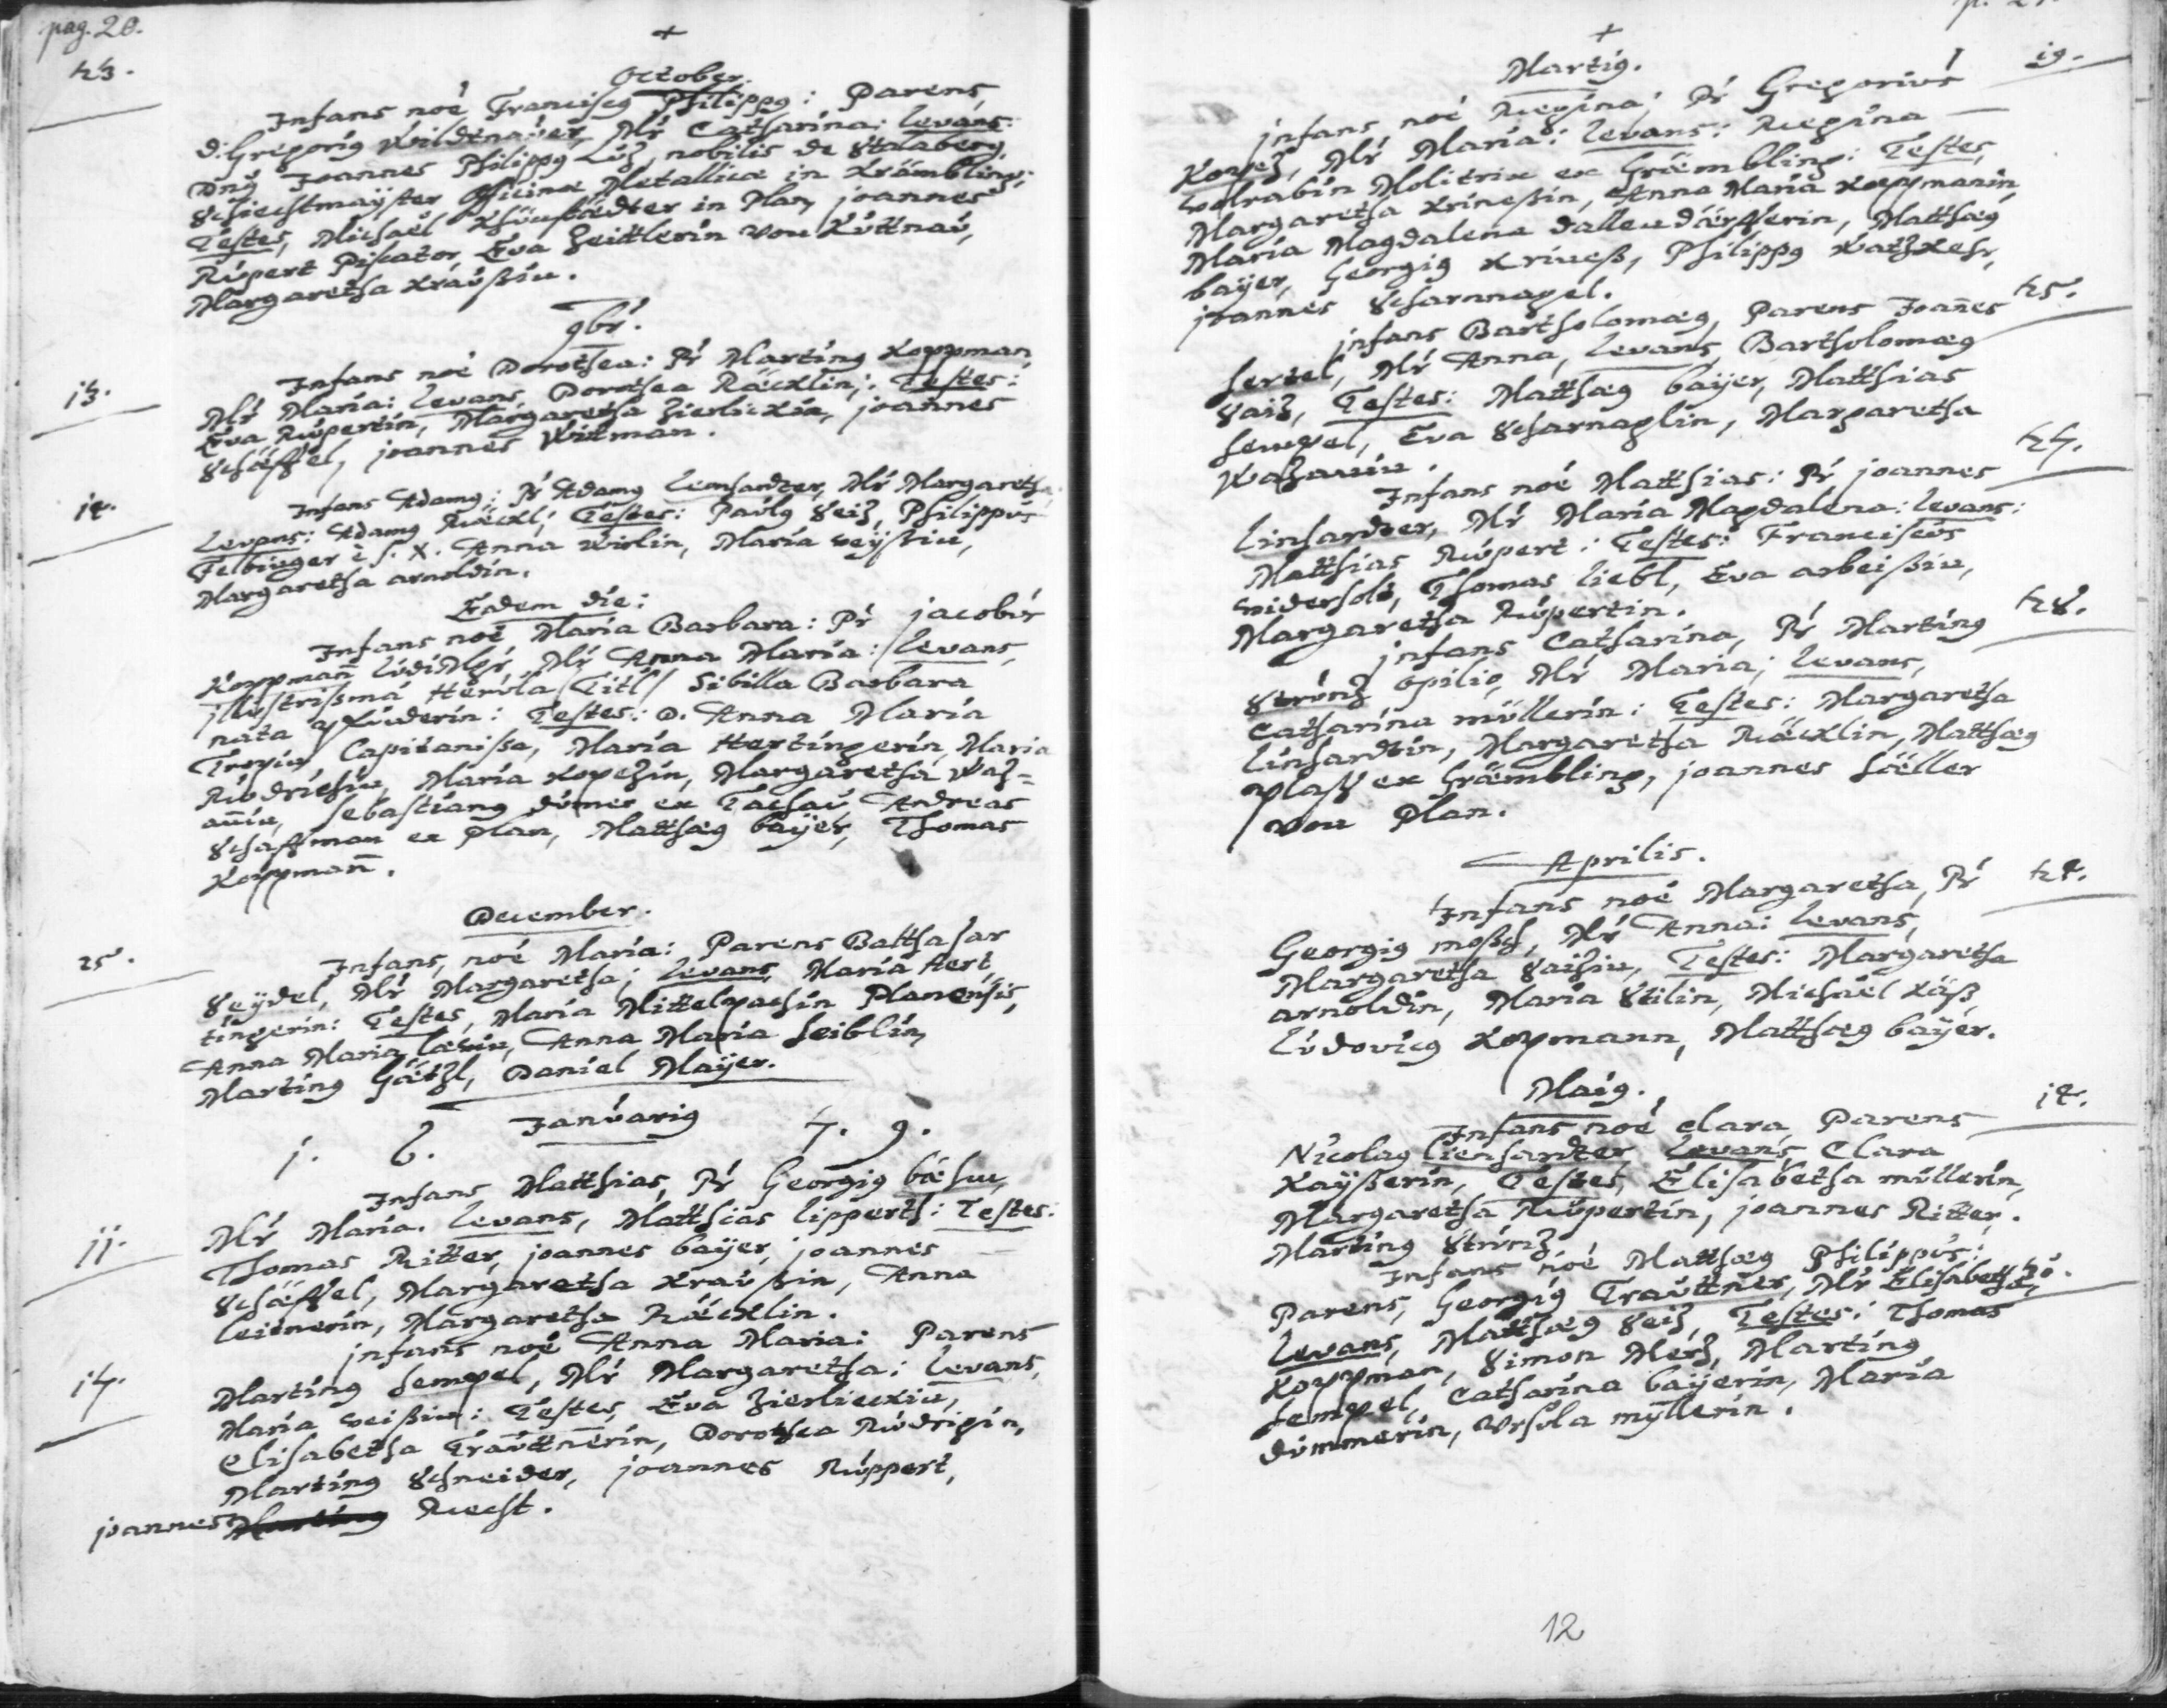 pag. 20.
+
23.
October.
Infans noē Franciscq Philippq: Parens
d: Gregoriq Wildtnaūer, Mr̃ Catharina: Levans:
Dnq̃ Joannes Philippq Lūz, nobilis de
Schiechtmaÿster officinæ Metallicæ in Krämbling:
Testes, Michaël in Plan, joannes
Rūpert Piscator, Eva Zeittlerin von Kūttnaū,
Margaretha Kraūßin.
9br̃.
13.
Infans noē Dorothea: Pr̃ Martinq Koppman
Mr̃ Maria: Levans, Dorothea Räcklin: Testes:
Eva Rūpertin, Margaretha Zierlickin, joannes
Schäffel, joannes Witman.
14.
Infans Adamq: Pr̃ Adamq Leinhardter, Mr̃ Margaretha
Levans: Adamq Räckl, Testes: Paūlq Seiz, Philippūs
Felbinger Anna Wirlin, Maria
Margaretha arnoldin.
Eadem die:
Infans noē Maria Barbara: Pr̃ jacobūs
Koppmañ LūdiMgr̃, Mr̃ Anna Maria: Levans,
jllūstrißima Herūla /Titl/ Sibilla Barbara
nata Testes: D. Anna Maria
Capitanißa, Maria Hertingerin, Maria
Maria Kopezin, Margaretha Waz=
añin, Sebastianq dūmer ex Tachaū Andreas
Schaffman ex Plan, Matthæq baÿer, Thomas
Koppmañ.
December.
25.
Infans, noē Maria: Parens Balthasar
Seÿdel, Mr̃ Margaretha; Levans, Maria Hert
tingerin: Testes, Maria Mittelpachin Planensis,
Anna Maria Anna Maria Leiblin,
Martinq Götzl, Daniel Maÿer.
Janūariq
1. 6. 7. 9.
11.
Infans, Matthias, Pr̃ Georgiq
Mr̃ Maria. Levans, Matthias Lipperth: Testes:
Thomas Ritter, joannes baÿer, joannes
Schäffel, Margaretha Kraūßin, Anna
Leitnerin, Margaretha Räcklin.
17.
jnfans noē Anna Maria: Parens
Martinq Hempel, Mr̃ Margaretha: Levans,
Maria weißin: Testes, Eva Zierlieckin,
Elisabetha Traūttnerin, Dorothea Rūdrigin,
Martinq Schneider, joannes Rūppert,
joannes Martinq Ruesst.
+
Martiq.
19.
jnfans, noē Regina, Pr̃ Gregoriūs
Kopez, Mr̃ Maria: Levans: Regina
wolrabin Molitrix ex Grämbling: Testes,
Margaretha Krineßin, Anna Maria Koppmanin,
Maria Magdalena Matthæq
baÿer, Georgiq Krineß, Philippq
joannes Scharnnagel.
25.
jnfans Bartholomæq, Parens Joañes
Hertel, Mr̃ Anna, Levans, Bartholomæq
Saiz, Testes: Matthæq baÿer, Matthias
Hempel, Eva Scharnaglin, Margaretha
Wazanin.
27.
Infans noē Matthias: Pr̃ joannes
Linhardter, Mr̃ Maria Magdalena: Levans:
Matthias Rūpert: Testes: Franciscūs
widerholt, Thomas Liebl, Eva arbeißin,
Margaretha Rūpertin.
28.
jnfans Catharina, Pr̃ Martinq
Strūnz opilio, Mr̃ Maria; Levans,
Catharina mūllerin: Testes: Margaretha
Linhardtin, Margaretha Räcklin, Matthæq
plaß ex Grämbling, joannes Häller
von Plan.
Aprilis.
24.
Infans noē Margaretha, Pr̃
Georgiq Mr̃ Anna: Levans,
Margaretha Saizin, Testes: Margaretha
arnoldin, Maria Stilin, Michaël Käß,
Lūdovicq Kopmann, Matthæq baÿer.
Maiq.
14.
Infans noē Clara, Parens
Nicolaq Lienhardter, Levans, Clara
Kaÿßerin, Testes, Elisabetha mūllerin,
Margaretha Rūpertin, joannes Ritter,
Martinq Strūnz.
Infans noē Matthæq Philippūs:
Parens, Georgiq Traūttner, Mr̃ Elisabetha,
Levans, Matthæq Seiz, Testes: Thomas
Koppman, Simon Merz, Martinq
Hempel, Catharina baÿerin, Maria
dūmmerin, Vrsūla mÿllerin.
12